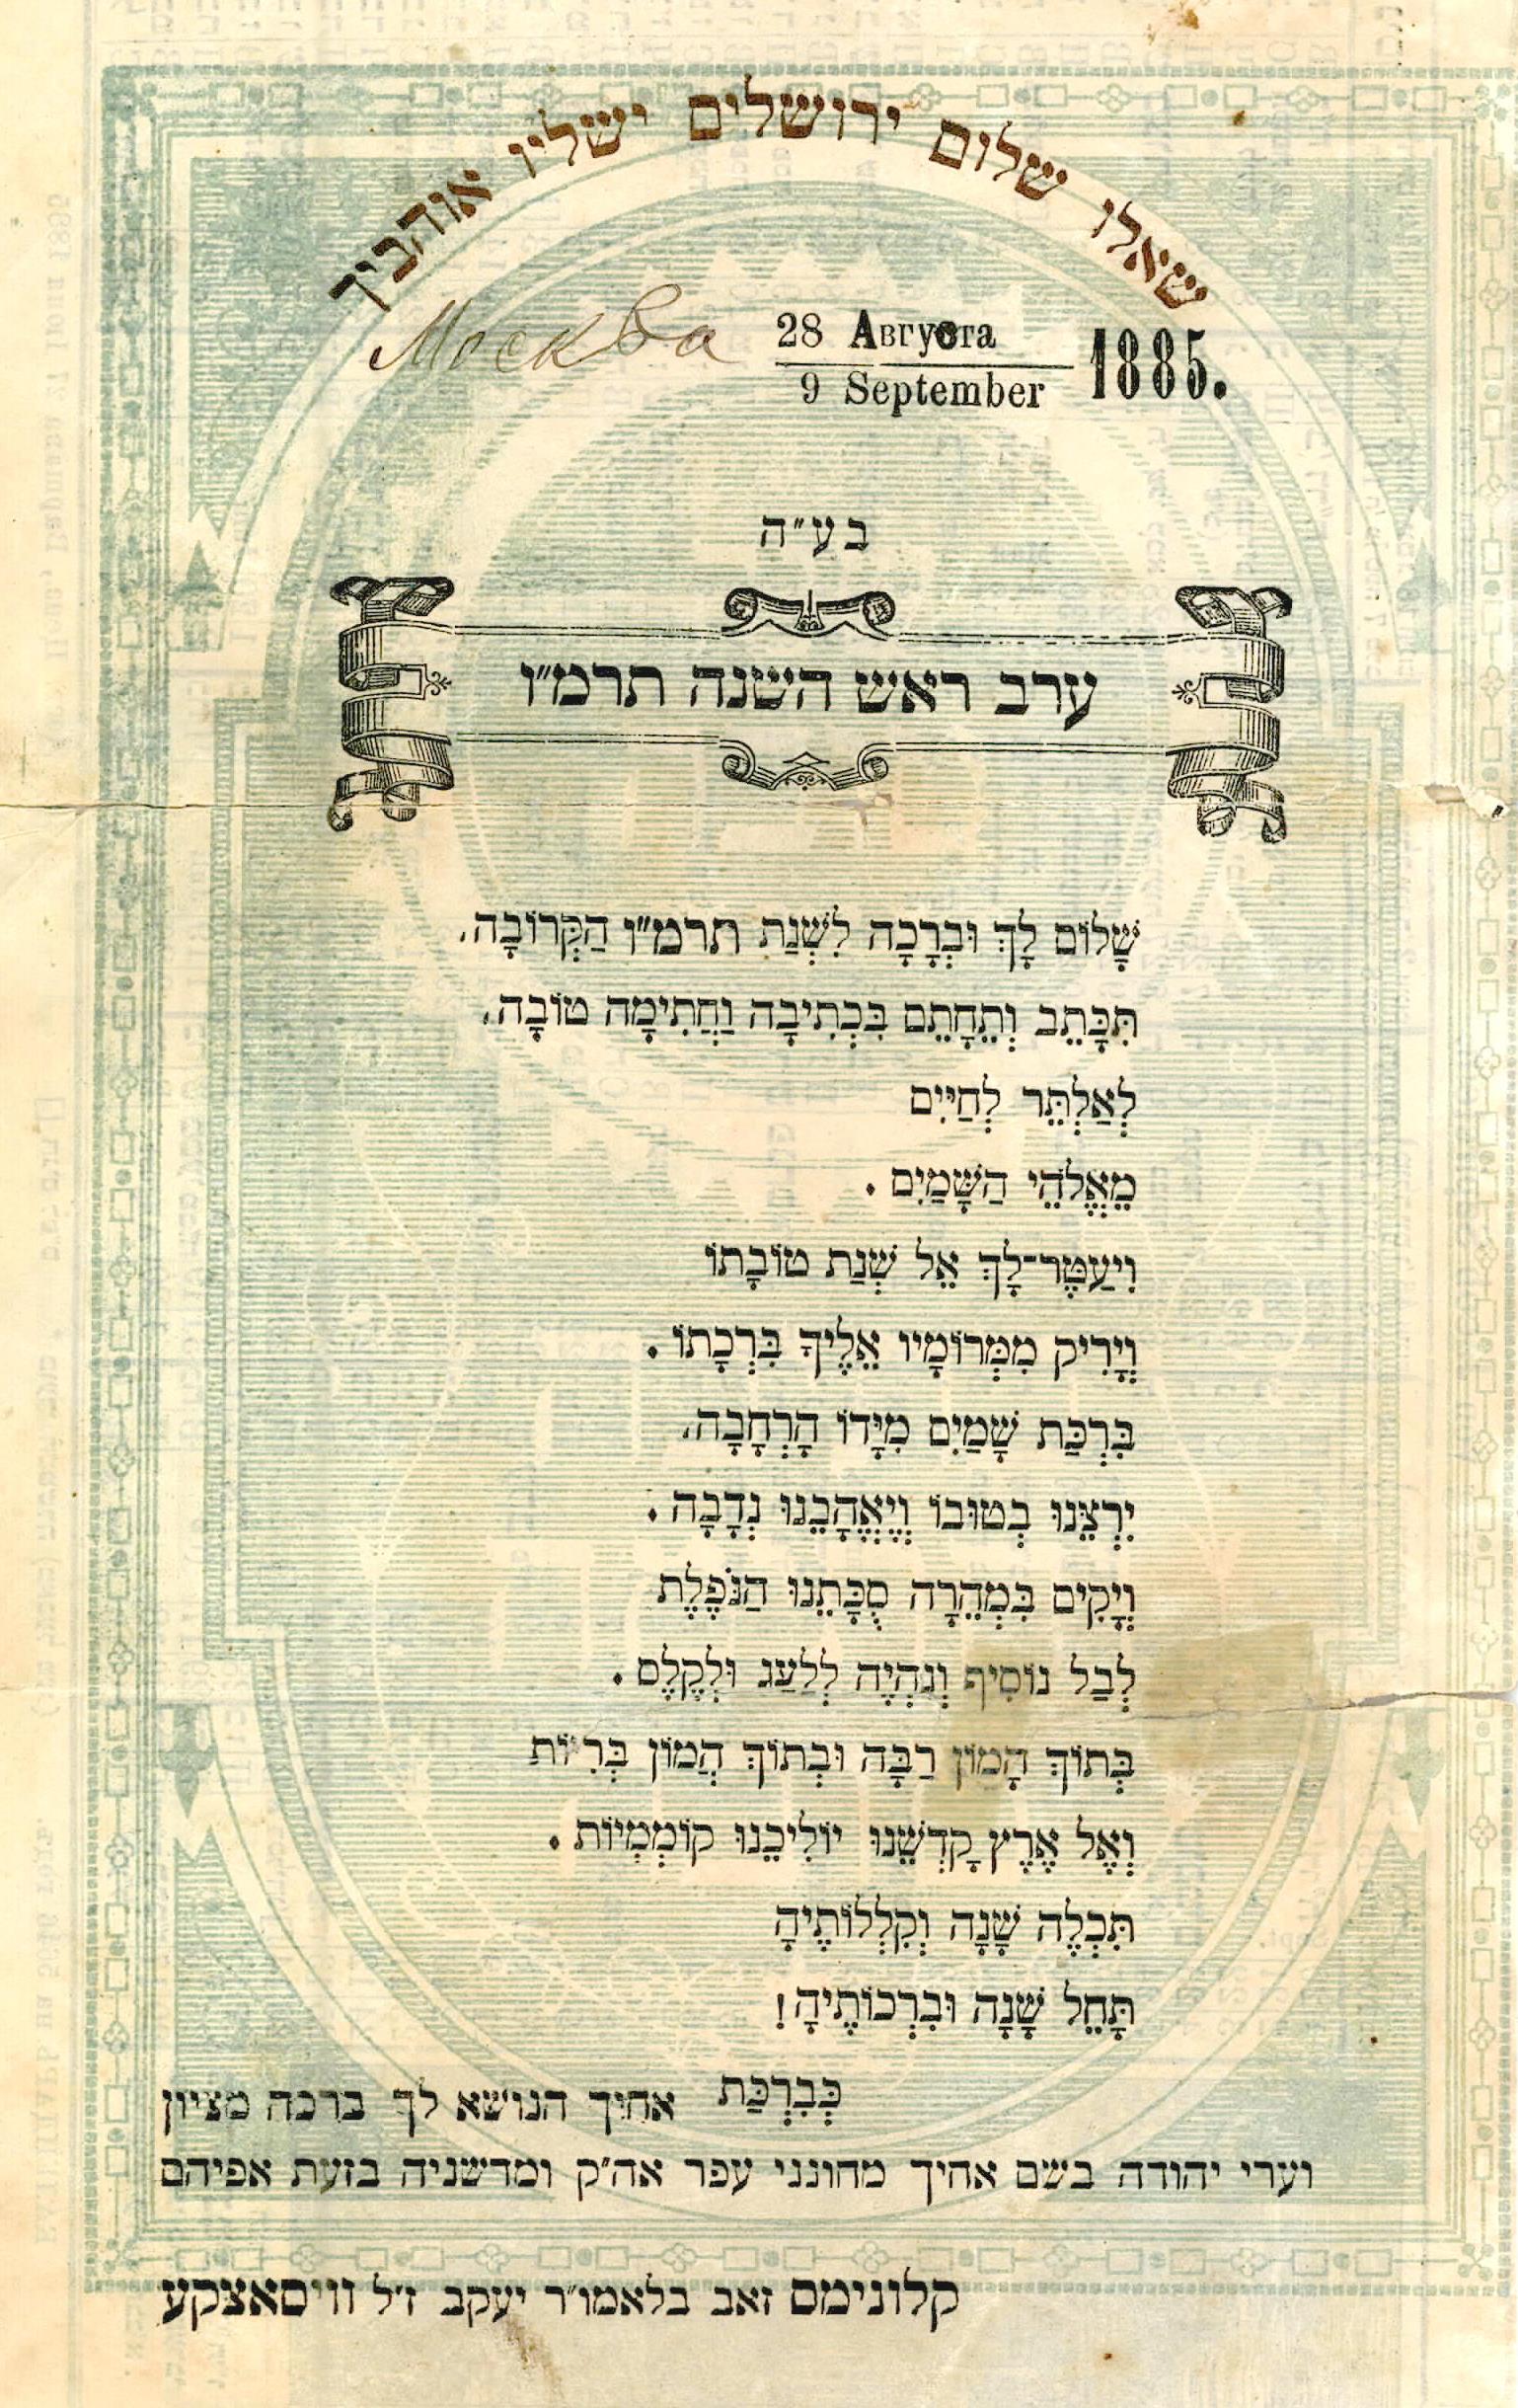 שאלו שלום ירושלים ישליו אוהביך
Москва 28 Августа 1885.
9 September
בע״ה
ערב ראש השנה תרמ״ו
שָׁלוֹם לָךְ וּבְרָכָה לִשְׁנַת תרמ״ו הַקְּרוֹבָה,
תִּכָּתֵב וְתֵחָתֵם בִּכְתִיבָה וַחֲתִימָה טוֹבָה,
לְאַלְתֵּר לְחַיִּים
מֵאֱלֹהֵי הַשָּׁמַיִם.
וִיעַטֶּר־לָךְ אֵל שְׁנַת טוֹבָתוֹ
וְיָרִיק מִמְּרוֹמָיו אֵלֶיךָ בִּרְכָתוֹ.
בִּרְכַּת שָׁמַיִם מִיָּדוֹ הָרְחָבָה,
יִרְצֵנוּ בְטוּבוֹ וְיֶאֱהָבֵנוּ נְדָבָה.
וְיָקִים בִּמְהֵרָה סֻכָּתֵנוּ הַנֹּפֶלֶת
לְבַל נוֹסִיף וְנִהְיֶה לְלַעַג וּלְקֶלֶס.
בְּתוֹךְ הָמוֹן רַבָּה וּבְתוֹךְ הֲמוֹן בְּרִיּוֹת
וְאֶל אֶרֶץ קָדְשֵׁנוּ יוֹלִיכֵנוּ קוֹמְמִיּוֹת.
תִּכְלֶה שָׁנָה וְקִלְלוֹתֶיהָ
תָּחֵל שָׁנָה וּבִרְכוֹתֶיהָ!
כְּבִרְכַּת אחיך הנושא לך ברכה מציון
וערי יהודה בשם אחיך מחונני עפר אה״ק ומדשניה בזעת אפיהם
קלונימס זאב בלאמו״ר יעקב ז״ל וויסאצקע